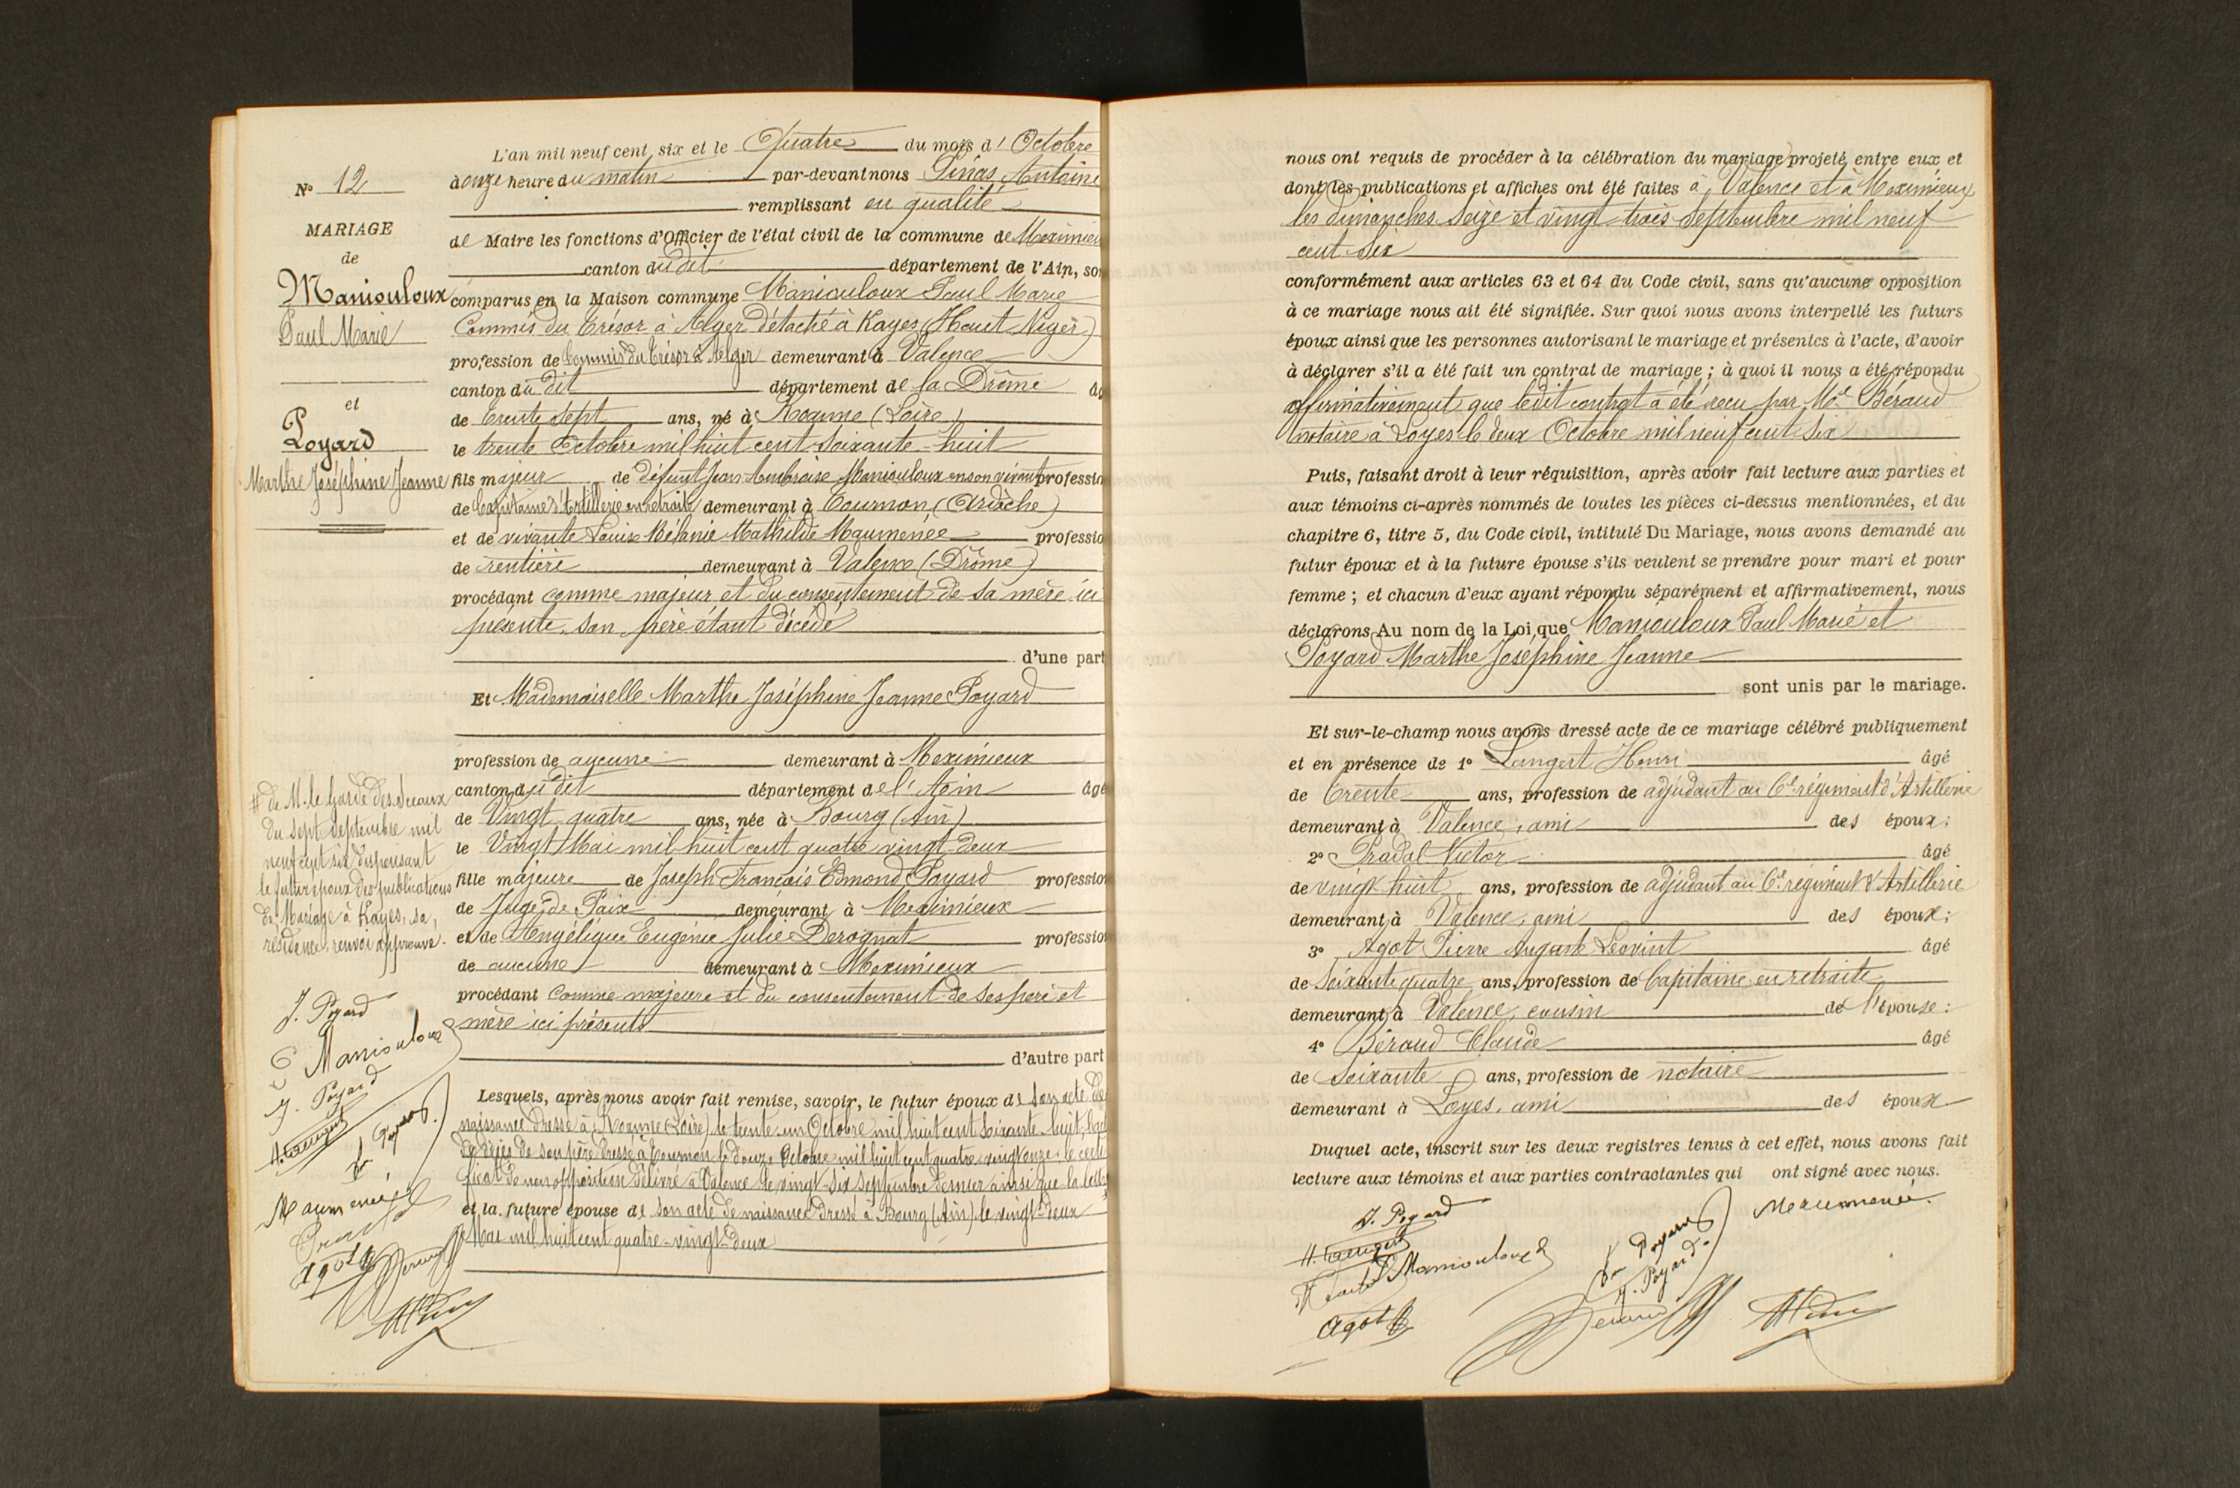 N° 12
MARIAGE
de
Maniouloux
Paul Marie
et
Poyard
Marthe Joséphine Jeanne
L'an mil neuf cent six et le Quatre du mois d'Octobre
à onze heure du matin par-devant nous Linas Antoine
remplissant en qualité
de Maire les fonctions d'Officier de l'état civil de la commune de Meximieu
canton du dit département de l'Ain, son
comparus en la Maison commune Maniouloux Paul Marie
Commis du Trésor à Alger détaché à Kayes (Haut Niger)
profession de Commis du Trésor à Alger demeurant à Valence
canton du dit département de la Drôme âg
de trente sept ans, né à Roanne (Loire)
le trente Octobre mil huit cent soixante-huit
fils majeur de défunt Jean Ambroise Maniouloux en son vivant professio
de Capitaine d'Artillerie en retraite demeurant à Tournon (Ardèche)
et de vivante Louise Mélanie Mathilde Maumenée professio
de rentière demeurant à Valence (Drôme)
procédant comme majeur et du consentement de sa mère ici
présente, son père étant décédé
d'une part
Et Mademoiselle Marthe Joséphine Jeanne Poyard
profession de aucune demeurant à Meximieux
canton du dit département de l'Ain âgé
de Vingt quatre ans, née à Bourg (Ain)
le Vingt Mai mil huit cent quatre vingt deux
fille majeure de Joseph François Edmond Poyard profession
de Juge de Paix demeurant à Meximieux
et de Angélique Eugénie Julie Derognat profession
de aucune demeurant à Meximieux
procédant comme majeure et du consentement de ses père et
mère ici présents
d'autre part
Lesquels, après nous avoir fait remise, savoir, le futur époux de son acte de
naissance dressé à Roanne (Loire) le trente un Octobre mil huit cent soixante huit,
de décès de son père dressé à Tournon le douze Octobre mil huit cent quatre vingt onze, le certi
ficat de non opposition délivré à Valence le vingt six septembre dernier ainsi que la
et la future épouse de son acte de naissance dressé à Bourg (Ain) le vingt deux
Mai mil huit cent quatre-vingt deux
# de M. le Garde des Sceaux
du sept septembre mil
neuf cent six dispensant
le futur époux des publications
de Mariage à Kayes, sa
résidence, renvoi approuvé.
J. Poyard
Maniouloux
J. Poyard
H. Langert
Poyard
Maumenée
Pradal
Agot
Béraud
nous ont requis de procéder à la célébration du mariage projeté entre eux et
dont les publications et affiches ont été faites à Valence et à Meximieux
les dimanches seize et vingt-trois septembre mil neuf
cent six
conformément aux articles 63 et 64 du Code civil, sans qu'aucune opposition
à ce mariage nous ait été signifiée. Sur quoi nous avons interpellé les futurs
époux ainsi que les personnes autorisant le mariage et présentes à l'acte, d'avoir
à déclarer s'il a été fait un contrat de mariage ; à quoi il nous a été répondu
affirmativement que ledit contrat a été reçu par Me Béraud
notaire à Loyes le deux Octobre mil neuf cent six
Puis, faisant droit à leur réquisition, après avoir fait lecture aux parties et
aux témoins ci-après nommés de toutes les pièces ci-dessus mentionnées, et du
chapitre 6, titre 5, du Code civil, intitulé Du Mariage, nous avons demandé au
futur époux et à la future épouse s'ils veulent se prendre pour mari et pour
femme ; et chacun d'eux ayant répondu séparément et affirmativement, nous
déclarons Au nom de la Loi que Maniouloux Paul Marie et
Poyard Marthe Joséphine Jeanne
sont unis par le mariage.
Et sur-le-champ nous avons dressé acte de ce mariage célébré publiquement
et en présence de 1° Langert Henri âgé
de trente ans, profession de adjudant au 6e régiment d'Artillerie
demeurant à Valence, ami des époux ;
2° Pradal Victor âgé
de vingt huit ans, profession de adjudant au 6e régiment d'Artillerie
demeurant à Valence, ami des époux ;
3° Agot Pierre Auguste âgé
de soixante quatre ans, profession de Capitaine en retraite
demeurant à Valence, cousin de l'épouse :
4° Béraud Claude âgé
de soixante ans, profession de notaire
demeurant à Loyes, ami des époux
Duquel acte, inscrit sur les deux registres tenus à cet effet, nous avons fait
lecture aux témoins et aux parties contractantes qui ont signé avec nous.
J. Poyard
H. Langert
Maniouloux
Agot
Poyard
J. Poyard
Maumenée
Béraud